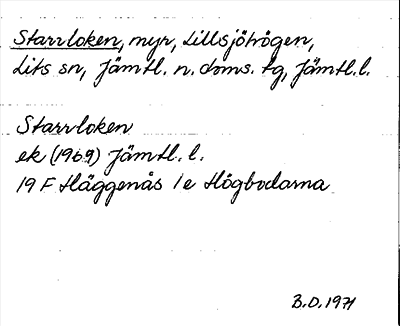 Starrloken, myr, Lillsjöhögen,
Lits sn, Jämtl. n. doms. tg, Jämtl. l.
Starrloken
ek (1969) Jämtl. l.
19 F Häggenås 1e Högbodarna
B.O. 1971